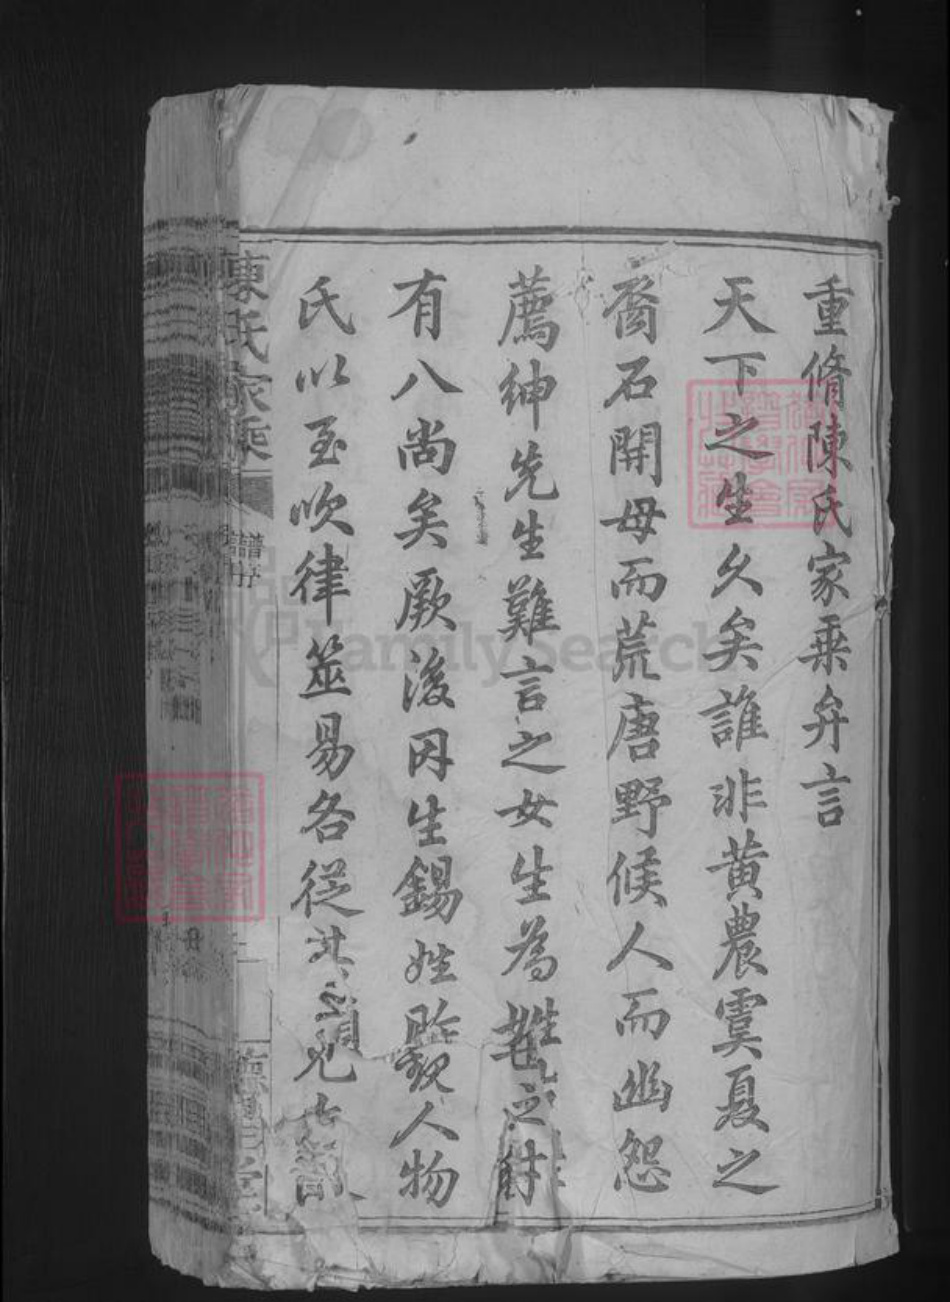 重脩陳氏家乘弁言
天下之生久矣誰非黃農虞夏之
裔石開母而荒唐野候人而幽怨
薦紳先生難言之女生為姓之
有八尚矣厥後因生錫姓 人物
氏以至吹律筮易各從其
陳氏家乘
譜序
FamilySearch